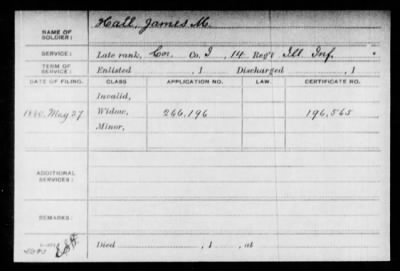 NAME OF SOLDIER: Hall, James M.
SERVICE: Late rank, Cor. Co. I, 14 Reg't Ill. Inf.
TERM OF SERVICE: Enlisted , 1 Discharged , 1
DATE OF FILING. CLASS APPLICATION NO. LAW. CERTIFICATE NO.
Invalid,
1880, May 27 Widow, 266,196 196,565
Minor,
ADDITIONAL SERVICES:
REMARKS:
Died , 1 , at